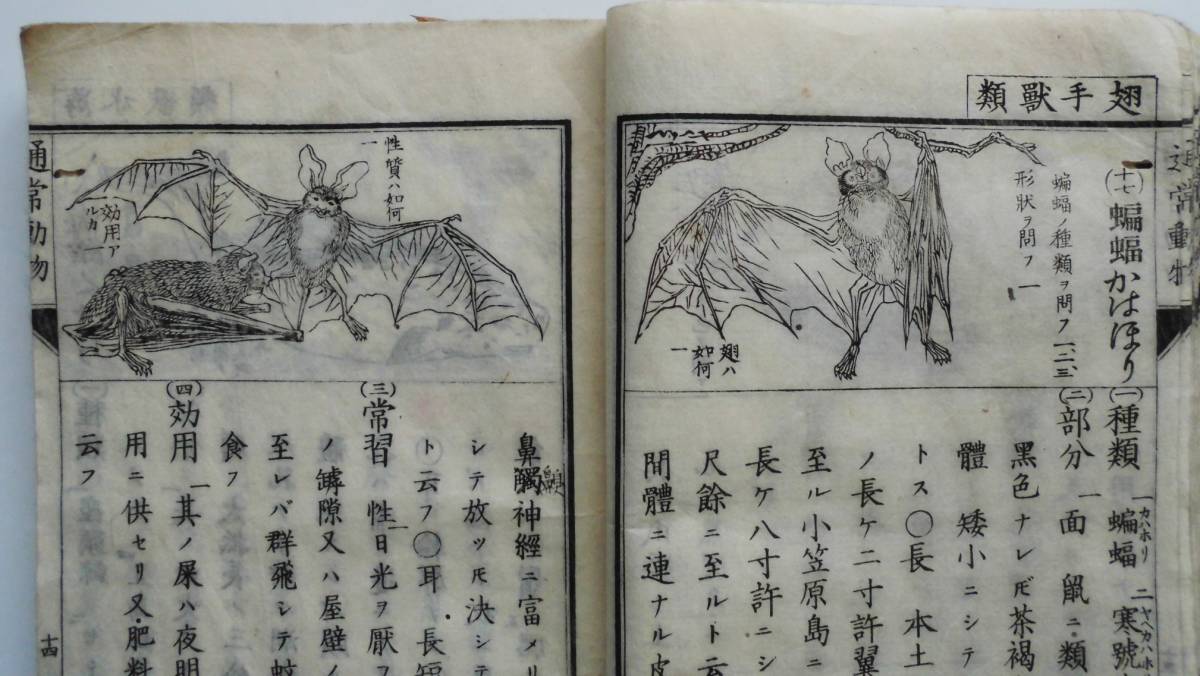 翅手獸類
通常動物
(十七)蝙蝠かはほり
蝙蝠ノ種類ヲ問フ一、二、三
形狀ヲ問フ一
翅ハ
如何
一
(一)種類 一蝙蝠カハホリ 二寒號
(二)部分 一面 鼠ニ類
黑色ナレ𪜈茶褐
體 矮小ニシテ
トス〇長 本土
ノ長ケ二寸許翼
至ル小笠原島ニ
長ケ八寸許ニシ
尺餘ニ至ルト云
間體ニ連ナル皮
性質ハ如何
一
効用ア
ルカ一
通常動物
鼻觸神經ニ富メリ
シテ放ツ𪜈決シテ
ト云フ〇耳 長短
(三)常習ハ一性日光ヲ厭フ
ノ罅隙又ハ屋壁ノ
至レバ群飛シテ蚊
食フ
(四)効用 一其ノ屎ハ夜明
用ニ供セリ又肥料
云フ
十四